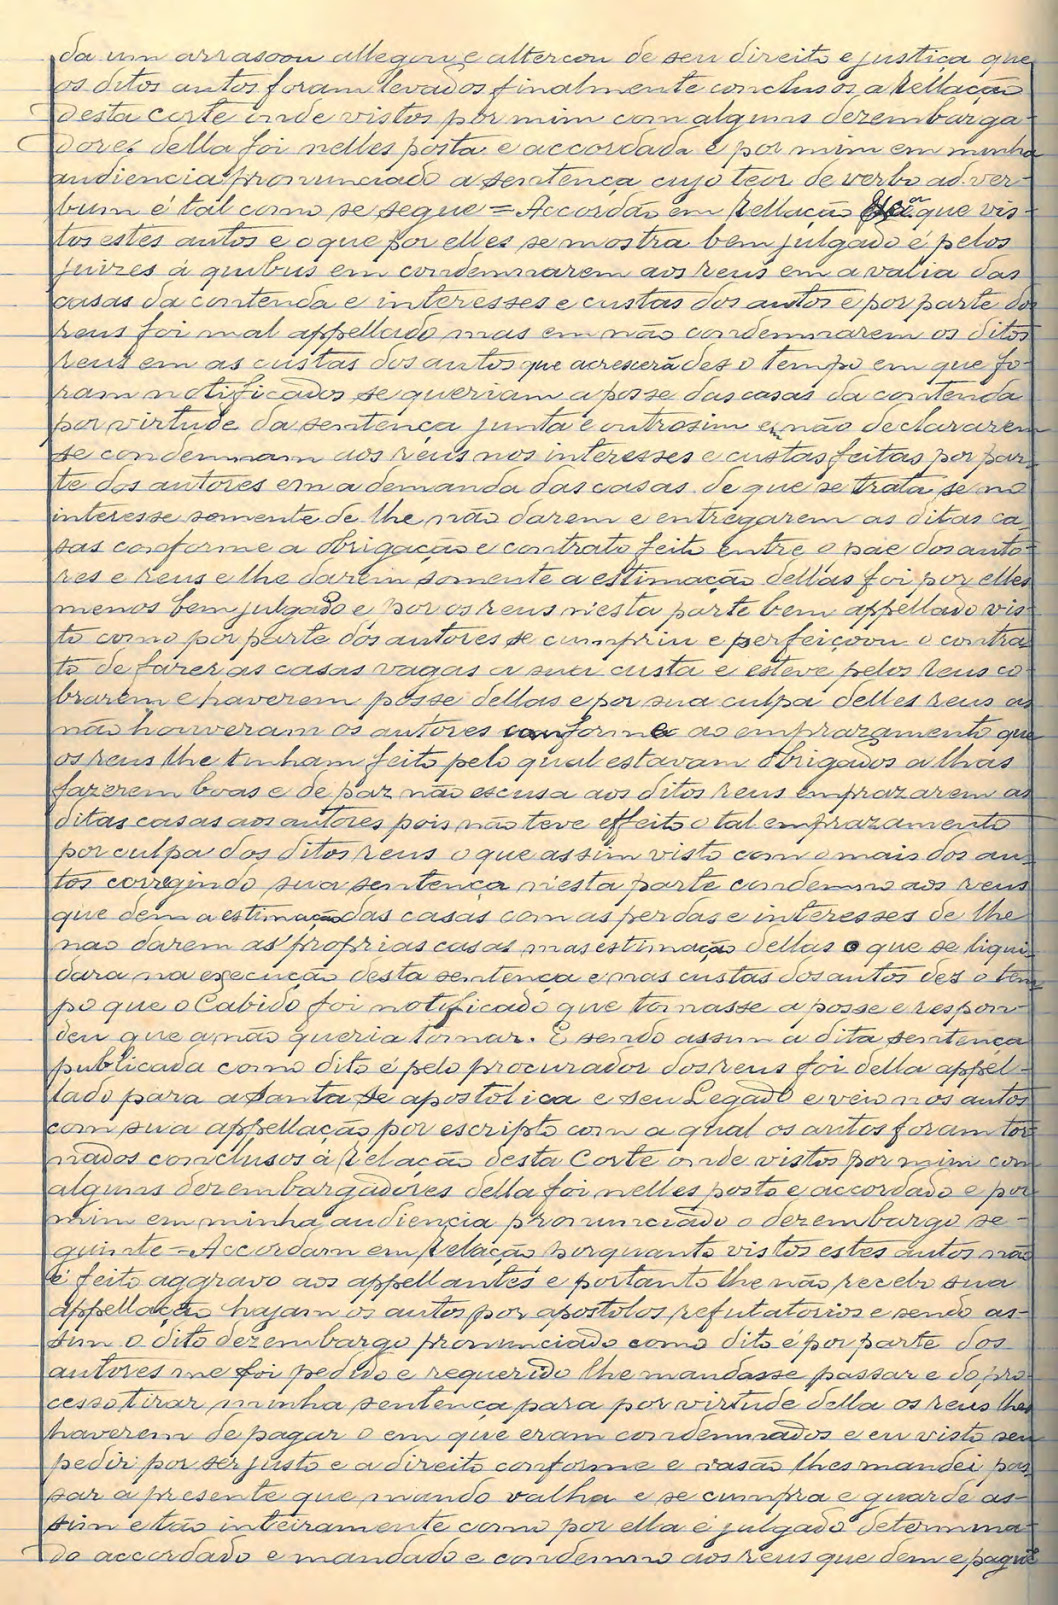 da um arrasoou allegou e altercou de seu direito e justiça que
os ditos autos foram levados finalmente conclusos a Rellação
desta corte onde vistos por mim com alguns dezembarga-
dores della foi nelles posta e accordada e por mim em minha
audiencia pronunciado a sentença cujo teor de verbo ad ver-
bum é tal como se segue = Accordão em Rellação que vis-
tos estes autos e o que por elles se mostra bem julgado é pelos
juizes á quibus em condemnarem aos reus em a valia das
casas da contenda e interesses e custas dos autos e por parte dos
reus foi mal appellado mas em não condemnarem os ditos
reus em as custas dos autos que acrescerã des o tempo em que fo-
ram notificados se queriam a posse das casas da contenda
por virtude da sentença junta e outrosim em não declararem
se condemnam aos reus nos interesses e custas feitas por par-
te dos autores em a demanda das casas de que se trata se no
interesse somente de lhe não darem e entregarem as ditas ca-
sas conforme a obrigação e contrato feito entre o pae dos auto-
res e reus e lhe darem somente a estimação dellas foi por elles
menos bem julgado e por os reus n'esta parte bem appellado vis-
to como por parte dos autores se cumpriu e perfeiçoou o contra-
to de fazer as casas vagas a sua custa e esteve pelos reus co-
brarem e haverem posse dellas e por sua culpa delles reus as
não houveram os autores conforme ao emprazamento que
os reus lhe tinham feito pelo qual estavam obrigados a lhas
fazerem boas e de paz não escusa aos ditos reus emprazarem as
ditas casas aos autores pois não teve effeito o tal emprazamento
por culpa dos ditos reus o que assim visto com o mais dos au-
tos corregindo sua sentença n'esta parte condemno aos reus
que dem a estimação das casas com as perdas e interesses de lhe
nao darem as proprias casas mas estimação dellas o que se liqui-
dara na execução desta sentença e nas custas dos autos des o tem-
po que o Cabido foi notificado que tornasse a posse e respon-
deu que a não queria tomar. E sendo assim a dita sentença
publicada como dito é pelo procurador dos reus foi della appel-
lado para a Santa Se apostolica e seu Legado e veio nos autos
com sua appellação por escripto com a qual os autos foram tor-
nados conclusos á Relação desta Corte onde vistos por mim com
alguns dezembargadores della foi nelles posto e accordado e por
mim em minha audiencia pronunciado o dezembargo se-
guinte = Accordam em Relação porquanto vistos estes autos não
é feito aggravo aos appellantes e portanto lhe não recebo sua
appellação hajam os autos por apostolos refutatorios e sendo as-
sim o dito dezembargo pronunciado como dito é por parte dos
autores me foi pedido e requerido lhe mandasse passar e do pro-
cesso tirar minha sentença para por virtude della os reus lhe
haverem de pagar o em que eram condemnados e eu visto seu
pedir por ser justo e a direito conforme e rasão lhes mandei pas-
sar a presente que mando valha e se cumpra e guarde as-
sim e tão inteiramente como por ella é julgado determina-
do accordado e mandado e condemno aos reus que dem e paguẽ